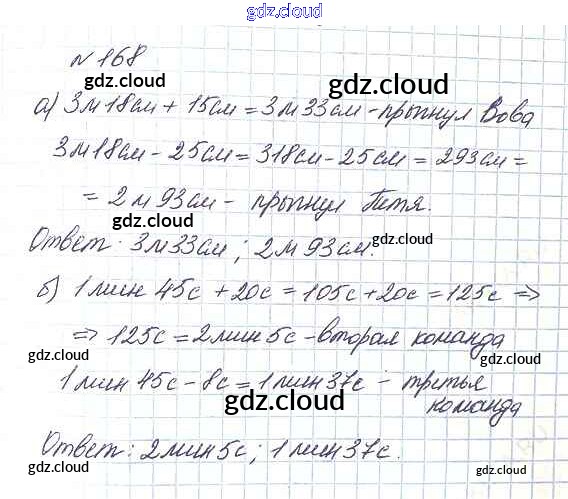 gdz.cloud
gdz.cloud
№ 168
gdz.cloud
gdz.cloud
а) 3м 18см + 15см = 3м 33см - прыгнул Вова
gdz.cloud
gdz.cloud
3м 18см - 25см = 318см - 25см = 293см =
= 2м 93см - прыгнул Петя.
gdz.cloud
gdz.cloud
Ответ: 3м 33см; 2м 93см.
gdz.cloud
б) 1 мин 45с + 20с = 105с + 20с = 125с ⇒
⇒ 125с = 2 мин 5с - вторая команда
gdz.cloud
gdz.cloud
1 мин 45с - 8с = 1 мин 37с - третья
команда
gdz.cloud
Ответ: 2 мин 5с; 1 мин 37с.
gdz.cloud
gdz.cloud
gdz.cloud